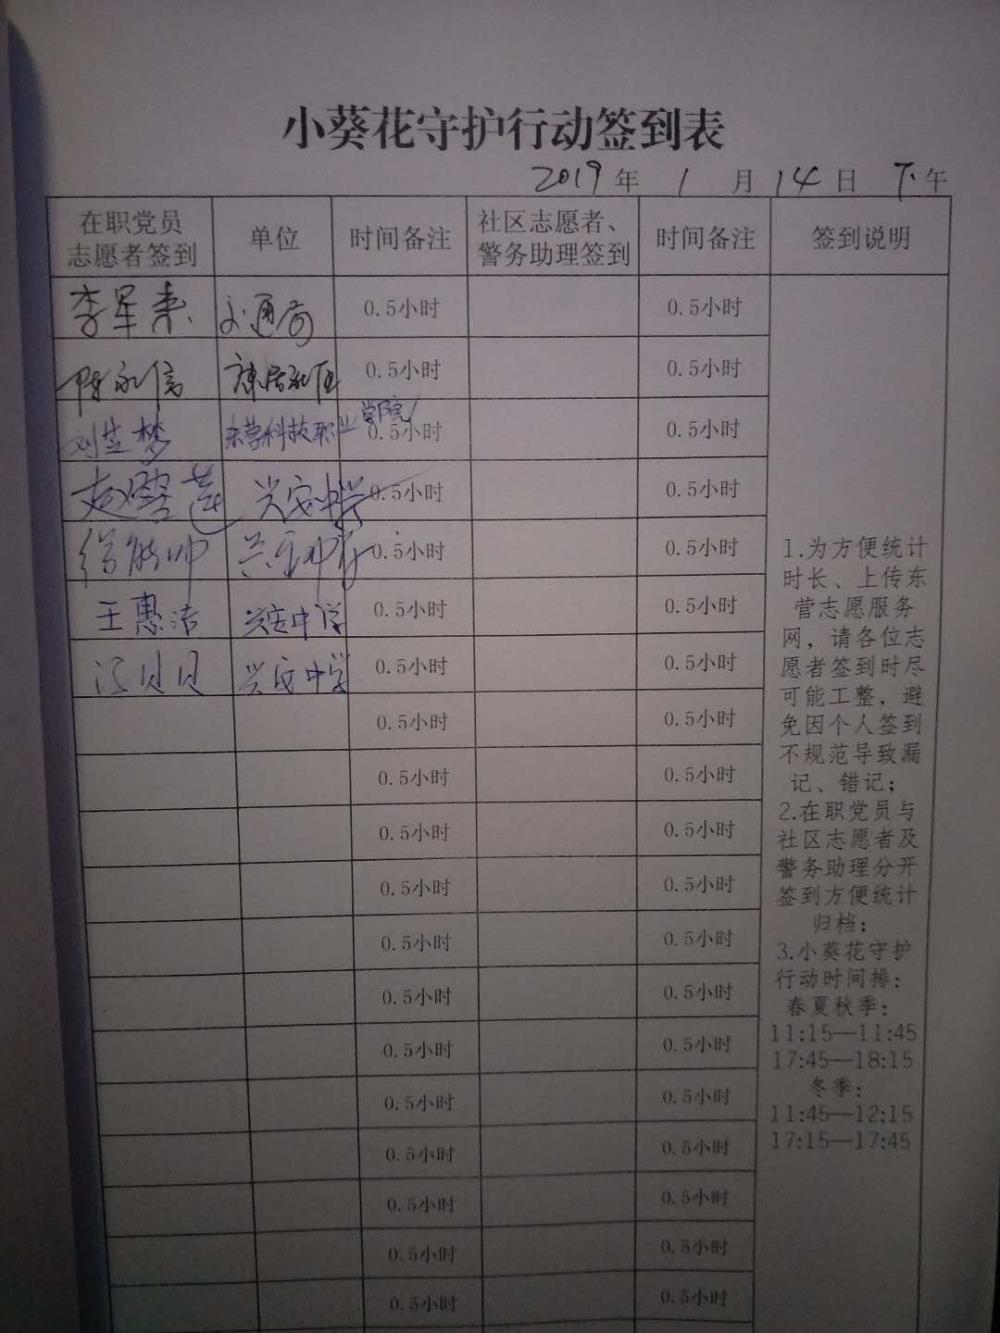 小葵花守护行动签到表
2019年 1月14日 下午
在职党员
志愿者签到
单位
时间备注
社区志愿者、
警务助理签到
时间备注
签到说明
李军来 交通局 0.5小时 0.5小时
陈永信 0.5小时 0.5小时
刘芝梦 东营科技职业学院 0.5小时 0.5小时
兴安中学 0.5小时 0.5小时
徐 帅 兴安中学 0.5小时 0.5小时
王惠洁 兴安中学 0.5小时 0.5小时
贝贝 兴安中学 0.5小时 0.5小时
0.5小时 0.5小时
0.5小时 0.5小时
0.5小时 0.5小时
0.5小时 0.5小时
0.5小时 0.5小时
0.5小时 0.5小时
0.5小时 0.5小时
0.5小时 0.5小时
0.5小时 0.5小时
0.5小时 0.5小时
0.5小时 0.5小时
0.5小时 0.5小时
1.为方便统计
时长、上传东
营志愿服务
网，请各位志
愿者签到时尽
可能工整，避
免因个人签到
不规范导致漏
记、错记；
2.在职党员与
社区志愿者及
警务助理分开
签到方便统计
归档；
3.小葵花守护
行动时间排：
春夏秋季：
11:15—11:45
17:45—18:15
冬季：
11:45—12:15
17:15—17:45